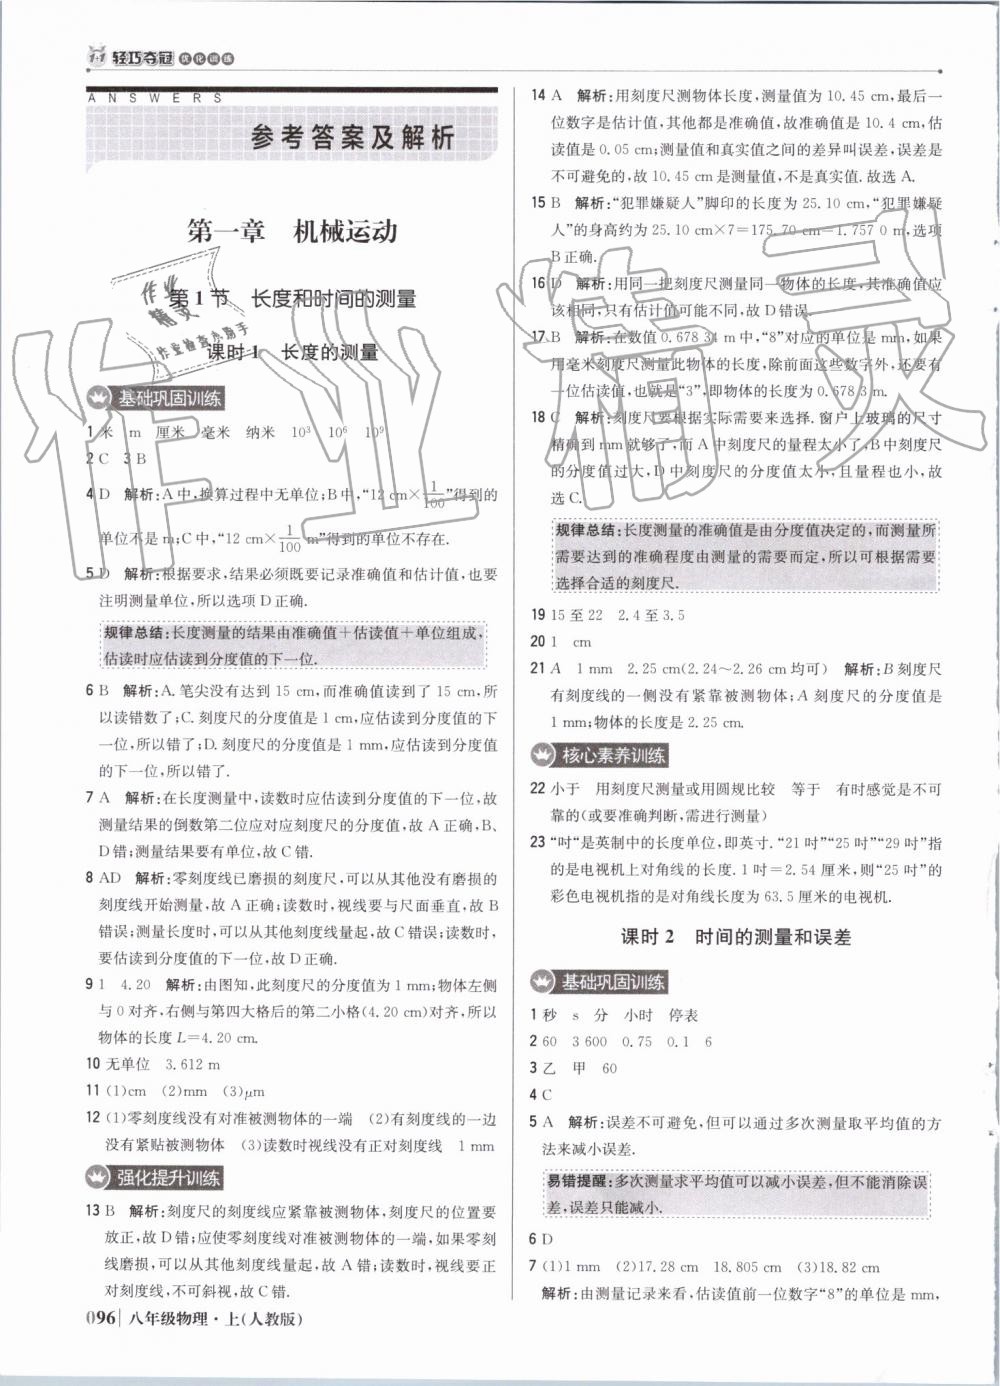 1+1 轻巧夺冠 优化训练
ANSWERS
参考答案及解析
第一章 机械运动
第1节 长度和时间的测量
课时1 长度的测量
基础巩固训练
1 米 m 厘米 毫米 纳米 10³ 10⁶ 10⁹
2 C 3 B
4 D 解析:A中,换算过程中无单位;B中,“12 cm×1/100”得到的
单位不是 m;C中,“12 cm×1/100 m”得到的单位不存在.
5 D 解析:根据要求,结果必须既要记录准确值和估计值,也要
注明测量单位,所以选项D正确.
规律总结:长度测量的结果由准确值+估读值+单位组成,
估读时应估读到分度值的下一位.
6 B 解析:A.笔尖没有达到 15 cm,而准确值读到了 15 cm,所
以读错数了;C.刻度尺的分度值是 1 cm,应估读到分度值的下
一位,所以错了;D.刻度尺的分度值是 1 mm,应估读到分度值
的下一位,所以错了.
7 A 解析:在长度测量中,读数时应估读到分度值的下一位,故
测量结果的倒数第二位应对应刻度尺的分度值,故A正确,B、
D错;测量结果要有单位,故C错.
8 AD 解析:零刻度线已磨损的刻度尺,可以从其他没有磨损的
刻度线开始测量,故A正确;读数时,视线要与尺面垂直,故B
错误;测量长度时,可以从其他刻度线量起,故C错误;读数时,
要估读到分度值的下一位,故D正确.
9 1 4.20 解析:由图知,此刻度尺的分度值为 1 mm;物体左侧
与0对齐,右侧与第四大格后的第二小格(4.20 cm)对齐,所以
物体的长度 L=4.20 cm.
10 无单位 3.612 m
11 (1)cm (2)mm (3)μm
12 (1)零刻度线没有对准被测物体的一端 (2)有刻度线的一边
没有紧贴被测物体 (3)读数时视线没有正对刻度线 1 mm
强化提升训练
13 B 解析:刻度尺的刻度线应紧靠被测物体,刻度尺的位置要
放正,故D错;应使零刻度线对准物体的一端,如果零刻
度线磨损,可以从其他刻度线量起,故A错;读数时视线要正
对刻度线,不可斜视,故C错.
096 八年级物理·上(人教版)
14 A 解析:用刻度尺测物体长度,测量值为 10.45 cm,最后一
位数字是估计值,其他都是准确值,故准确值是 10.4 cm,估
读值是 0.05 cm;测量值和真实值之间的差异叫误差,误差是
不可避免的,故 10.45 cm 是测量值,不是真实值.故选A.
15 B 解析:“犯罪嫌疑人”脚印的长度为 25.10 cm,“犯罪嫌疑
人”的身高约为 25.10 cm×7=175.70 cm=1.757 0 m,选项
B正确.
16 D 解析:用同一把刻度尺测量同一物体的长度,其准确值应
该相同,只有估计值可能不同,故D错误.
17 B 解析:在数值 0.678 34 m 中,“8”对应的单位是 mm,如果
用毫米刻度尺测量此物体的长度,除前面这些数字外,还要有
一位估读值,也就是“3”,即物体的长度为 0.678 3 m.
18 C 解析:刻度尺要根据实际需要来选择.窗户上玻璃的尺寸
精确到 mm 就够了,而A中刻度尺的量程太小了,B中刻度尺
的分度值过大,D中刻度尺的分度值太小,且量程也小,故
选C.
规律总结:长度测量的准确值是由分度值决定的,而测量所
需要达到的准确程度由测量的需要而定,所以可根据需要
选择合适的刻度尺.
19 15至22 2.4至3.5
20 1 cm
21 A 1 mm 2.25 cm(2.24~2.26 cm均可) 解析:B刻度尺
有刻度线的一侧没有紧靠被测物体;A刻度尺的分度值是
1 mm;物体的长度是 2.25 cm.
核心素养训练
22 小于 用刻度尺测量或用圆规比较 等于 有时感觉是不可
靠的(或要准确判断,需进行测量)
23 “吋”是英制中的长度单位,即英寸.“21吋”“25吋”“29吋”指
的是电视机上对角线的长度.1吋=2.54厘米,则“25吋”的
彩色电视机指的是对角线长度为63.5厘米的电视机.
课时2 时间的测量和误差
基础巩固训练
1 秒 s 分 小时 停表
2 60 3 600 0.75 0.1 6
3 乙 甲 60
4 C
5 A 解析:误差不可避免,但可以通过多次测量取平均值的方
法来减小误差.
易错提醒:多次测量求平均值可以减小误差,但不能消除误
差,误差只能减小.
6 D
7 (1)1 mm (2)17.28 cm 18.805 cm (3)18.82 cm
解析:由测量记录来看,估读值前一位数字“8”的单位是 mm,
作业精灵